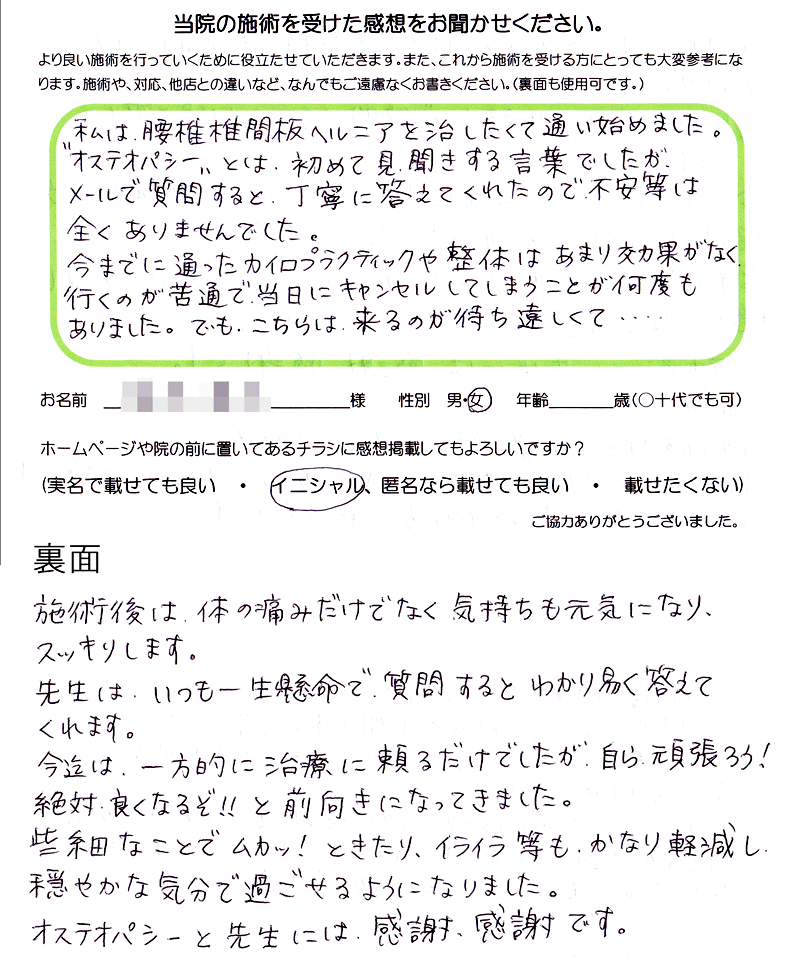 当院の施術を受けた感想をお聞かせください。
より良い施術を行っていくために役立たせていただきます。また、これから施術を受ける方にとっても大変参考にな
ります。施術や、対応、他店との違いなど、なんでもご遠慮なくお書きください。(裏面も使用可です。)
私は、腰椎椎間板ヘルニアを治したくて通い始めました。
"オステオパシー"とは、初めて見、聞きする言葉でしたが、
メールで質問すると、丁寧に答えてくれたので、不安等は
全くありませんでした。
今までに通ったカイロプラクティックや整体はあまり効果がなく、
行くのが苦通で、当日にキャンセルしてしまうことが何度も
ありました。でも、こちらは、来るのが待ち遠しくて・・・・
お名前 様 性別 男・女 年齢 歳(○十代でも可)
ホームページや院の前に置いてあるチラシに感想掲載してもよろしいですか?
(実名で載せても良い ・ イニシャル、匿名なら載せても良い ・ 載せたくない)
ご協力ありがとうございました。
裏面
施術後は、体の痛みだけでなく気持ちも元気になり、
スッキリします。
先生は、いつも一生懸命で、質問するとわかり易く答えて
くれます。
今迄は、一方的に治療に頼るだけでしたが、自ら、頑張ろう!
絶対、良くなるぞ!!と前向きになってきました。
些細なことでムカッ!ときたり、イライラ等も、かなり軽減し、
穏やかな気分で過ごせるようになりました。
オステオパシーと先生には、感謝、感謝です。